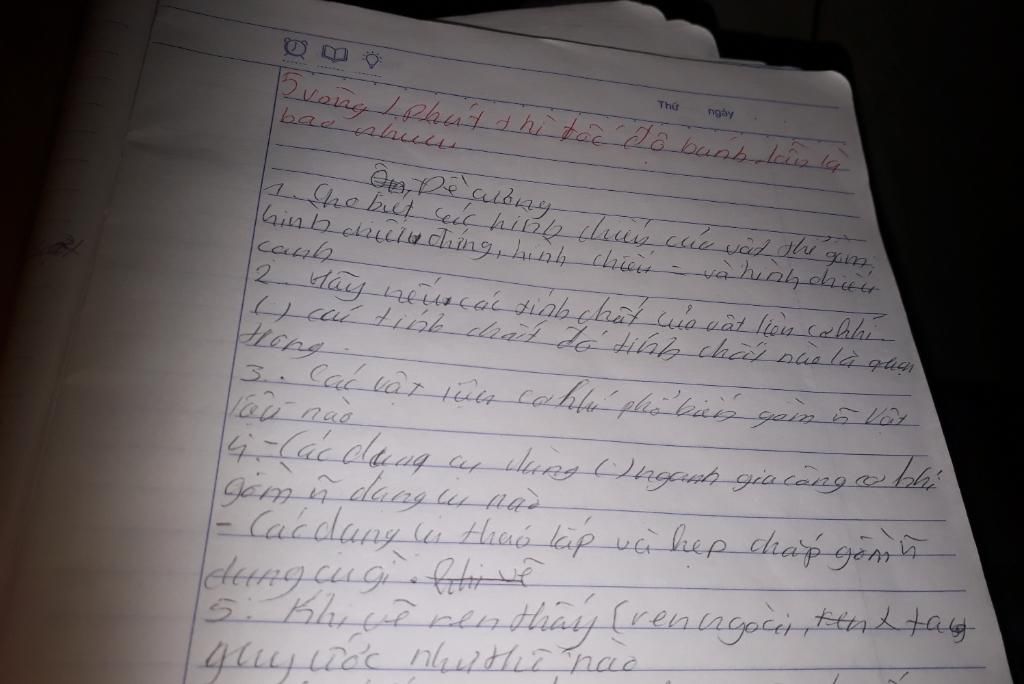 Thứ ngày
5 vòng / phút thì tốc độ bánh lần là
bao nhiêu
Ôn, Đề cương
1. Cho biết các hình chiếu của vật thể gồm
hình chiếu đứng, hình chiếu - và hình chiếu
cạnh
2. Hãy nêu các tính chất của vật liệu cơ khí.
(.) các tính chất đó tính chất nào là quan
trọng.
3. Các vật liệu cơ khí phổ biến gồm ~ vật
liệu nào
4. - Các dụng cụ dùng (.) ngành gia công cơ khí
gồm ~ dụng cụ nào
- Các dụng cụ tháo lắp và kẹp chặt gồm ~
dụng cụ gì. Khi vẽ
5. Khi vẽ ren thấy (ren ngoài, ren) ta
quy ước như thế nào